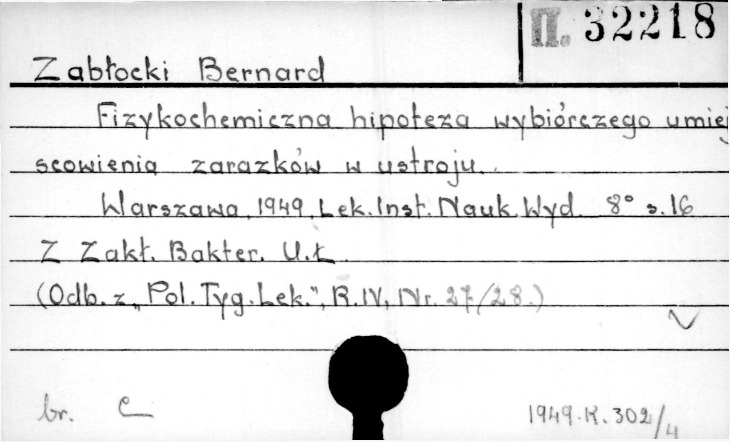 II. 32218
Zabłocki Bernard
Fizykochemiczna hipoteza wybiórczego umiej
scowienia zarazków w ustroju.
Warszawa, 1949, Lek. Inst. Nauk. Wyd. 8° s. 16
Z Zakł. Bakter. U.Ł.
(Odb. z „Pol. Tyg. Lek.", R. IV, Nr. 27/(28.)
br. C
1949.K.302/4